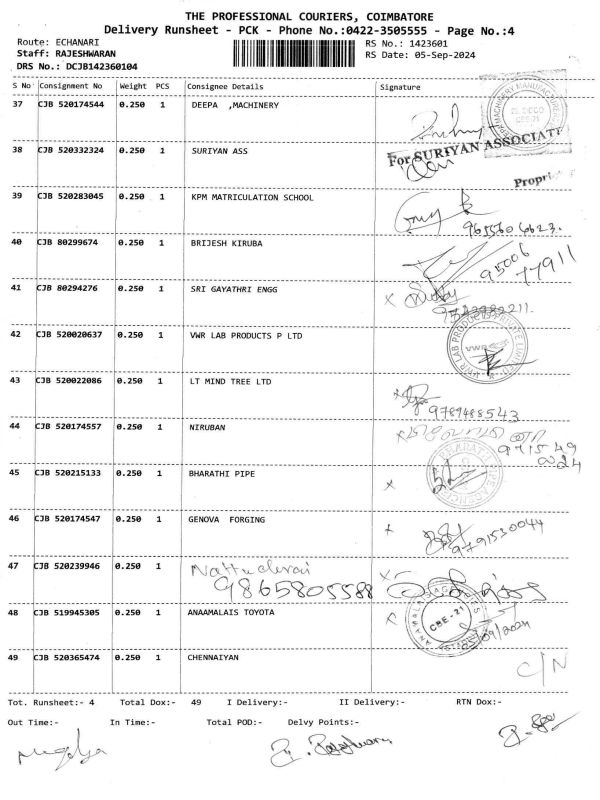 THE PROFESSIONAL COURIERS, COIMBATORE
Delivery Runsheet - PCK - Phone No.:0422-3505555 - Page No.:4
Route: ECHANARI
RS No.: 1423601
Staff: RAJESHWARAN
RS Date: 05-Sep-2024
DRS No.: DCJB142360104
S No Consignment No Weight PCS Consignee Details Signature
37 CJB 520174544 0.250 1 DEEPA ,MACHINERY
38 CJB 520332324 0.250 1 SURIYAN ASS
For SURIYAN ASSOCIATE
39 CJB 520283045 0.250 1 KPM MATRICULATION SCHOOL
9655606623.
40 CJB 80299674 0.250 1 BRIJESH KIRUBA
95006
77911
41 CJB 80294276 0.250 1 SRI GAYATHRI ENGG
42 CJB 520020637 0.250 1 VWR LAB PRODUCTS P LTD
VWR
43 CJB 520022086 0.250 1 LT MIND TREE LTD
9789488543
44 CJB 520174557 0.250 1 NIRUBAN
45 CJB 520215133 0.250 1 BHARATHI PIPE
46 CJB 520174547 0.250 1 GENOVA FORGING
9791530044
47 CJB 520239946 0.250 1
9865805588
48 CJB 519945305 0.250 1 ANAAMALAIS TOYOTA
CBE-21
49 CJB 520365474 0.250 1 CHENNAIYAN
C/N
Tot. Runsheet:- 4 Total Dox:- 49 I Delivery:- II Delivery:- RTN Dox:-
Out Time:- In Time:- Total POD:- Delvy Points:-